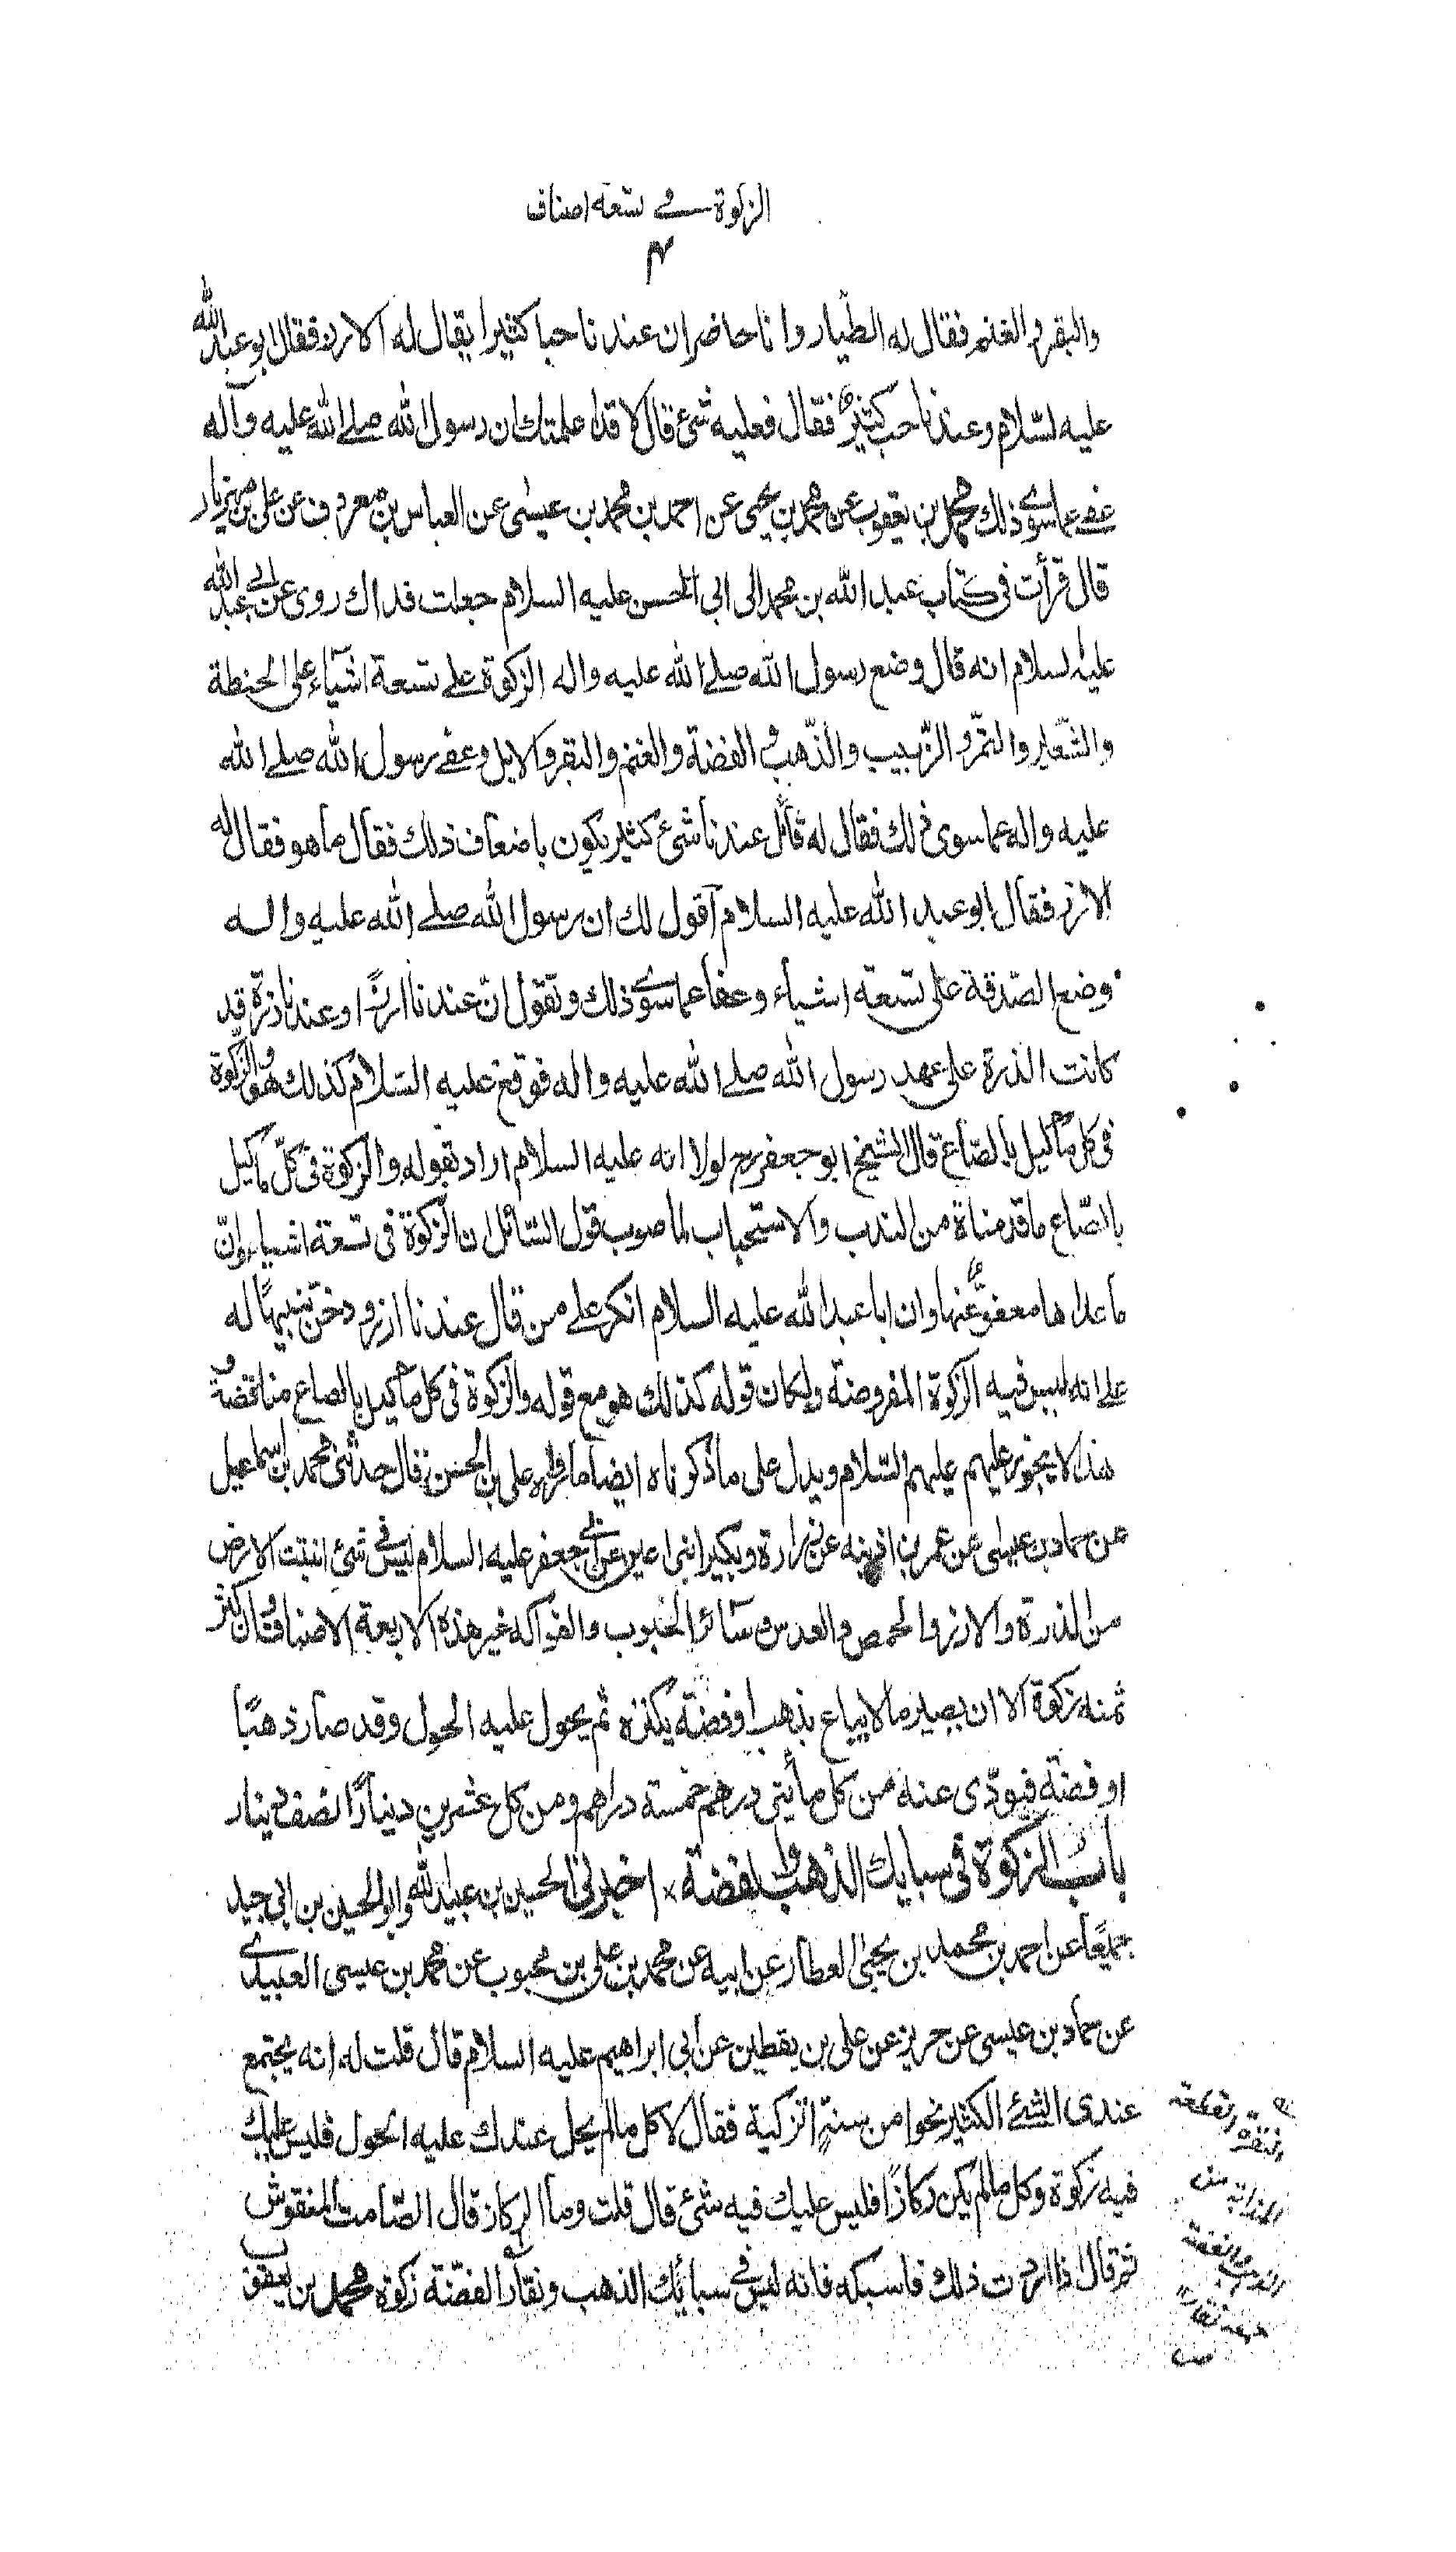 الزكوة في تسعة اصناف
والبقر والغنم فقال له الطيار وانا حاضر ان عندنا حبا كثيرا يقال له الارز فقال ابو عبد الله
عليه السّلام وعندنا حب كثير فقال فعليه شئ قال لا قد اعلمتك ان رسول الله صلے الله عليه وآله
عفے عما سوى ذلك محمد بن يعقوب عن محمد بن يحيى عن احمد بن محمد بن عيسى عن العباس بن معروف عن علي بن مهزيار
قال قرأت في كتاب عبد الله بن محمد الى ابي الحسن عليه السلام جعلت فداك روى عن ابي عبد الله
عليه السلام انه قال وضع رسول الله صلے الله عليه واله الزكوة على تسعة اشيآء على الحنطة
والشّعير والتمر والزّبيب والذّهب والفضة والغنم والبقر والابل وعفے رسول الله صلے الله
عليه واله عما سوى ذلك فقال له قائل عندنا شئ كثير يكون باضعاف ذلك فقال ما هو فقال له
الارز فقال ابو عبد الله عليه السلام آقول لك ان رسول الله صلے الله عليه واله
وضع الصّدقة على تسعة اشياء وعفا عما سوى ذلك وتقول انّ عندنا ارزًا وعندنا ذرة قد
كانت الذرة على عهد رسول الله صلے الله عليه واله فوقع عليه السّلام كذلك هو والزّكوة
في كل ما كيل بالصّاع قال الشيخ ابو جعفر رح لولا انه عليه السلام اراد بقوله والزكوة في كلّ ما كيل
بالصّاع ما قدمناه من الندب والاستحباب لما صوب قول السّائل ان الزّكوة في تسعة اشياء وانّ
ما عداها معفوّ عنها وان ابا عبد الله عليه السلام انكر على من قال عندنا ارز ودخن تنبيهًا له
على انه ليس فيه الزكوة المفروضة ولكان قوله كذلك هو مع قوله والزكوة في كل ما كيل بالصاع مناقضة و
هذا لا يجوز عليهم عليهم السّلام ويدل على ما ذكرناه ايضا ما رواه علي بن الحسن قال حدثني محمد بن اسماعيل
عن حماد بن عيسى عن عمر بن اذينه عن زرارة وبكير ابنى اعين عن ابي جعفر عليه السلام ليس في شئ انبتت الارض
من الذرة والارز والحمص والعدس وسائر الحبوب والفواكه غير هذه الاربعة الاصناف وان كثر
ثمنه زكوة الا ان يصير مالا يباع بذهب او فضة يكنزه ثم يحول عليه الحول وقد صار ذهبًا
او فضة فيودّى عنه من كل مأيتي درهم خمسة دراهم ومن كل عشرين دينارًا نصف دينار
باب الزكوة في سبايك الذهب والفضة × اخبرني الحسين بن عبيد الله وابو الحسين بن ابي جيد
جميعًا عن احمد بن محمد بن يحيى العطار عن ابيه عن محمد بن علي بن محبوب عن محمد بن عيسى العبيدي
عن حماد بن عيسى عن حريز عن علي بن يقطين عن ابي ابراهيم عليه السلام قال قلت له انه يجتمع
عندى الشئ الكثير نحوا من سنةٍ انزكيه فقال لا كل ما لم يحل عندك عليه الحول فليس عليك
فيه زكوة وكل ما لم يكن ركازًا فليس عليك فيه شئ قال قلت وما الركاز قال الصّامت المنقوش
ثم قال اذا اردت ذلك فاسبكه فانه ليس في سبائك الذهب ونقار الفضّة زكوة محمد بن يعقوب